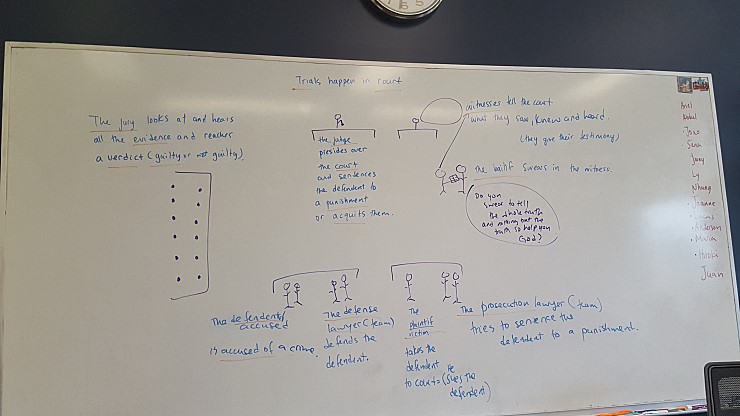 Trials happen in court
The jury looks at and hears
all the evidence and reaches
a verdict (guilty or not guilty).
the judge
presides over
the court
and sentences
the defendent to
a punishment
or acquits them.
witnesses tell the court
what they saw, knew and heard.
(they give their testimony)
the bailif swears in the witness.
Do you
swear to tell
the whole truth
and nothing but the
truth so help you
God?
The defendent/
accused
is accused of a crime.
The defense
lawyer (team)
defends the
defendent.
The
plaintif
victim
takes the
defendent
to court = (sues the
defendent)
The prosecution lawyer (team)
tries to sentence the
defendent to a punishment.
Ariel
Joao
Sena
Juny
Ly
Nhung
Joanne
Anderson
Maria
Juan